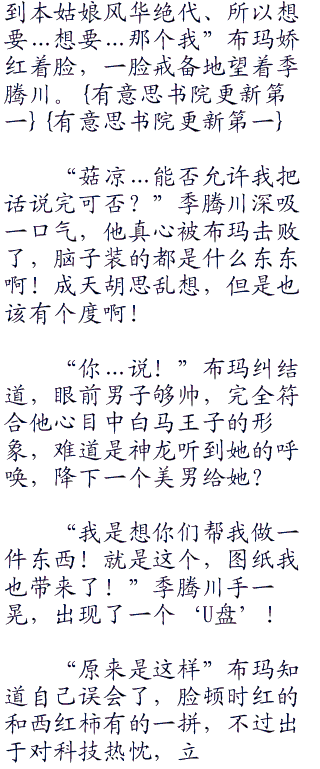 到本姑娘风华绝代、所以想
要…想要…那个我”布玛娇
红着脸，一脸戒备地望着季
腾川。{有意思书院更新第
一} {有意思书院更新第一}
“菇凉…能否允许我把
话说完可否？”季腾川深吸
一口气，他真心被布玛击败
了，脑子装的都是什么东东
啊！成天胡思乱想，但是也
该有个度啊！
“你…说！”布玛纠结
道，眼前男子够帅，完全符
合他心目中白马王子的形
象，难道是神龙听到她的呼
唤，降下一个美男给她？
“我是想你们帮我做一
件东西！就是这个，图纸我
也带来了！”季腾川手一
晃，出现了一个‘U盘’！
“原来是这样”布玛知
道自己误会了，脸顿时红的
和西红柿有的一拼，不过出
于对科技热忱，立